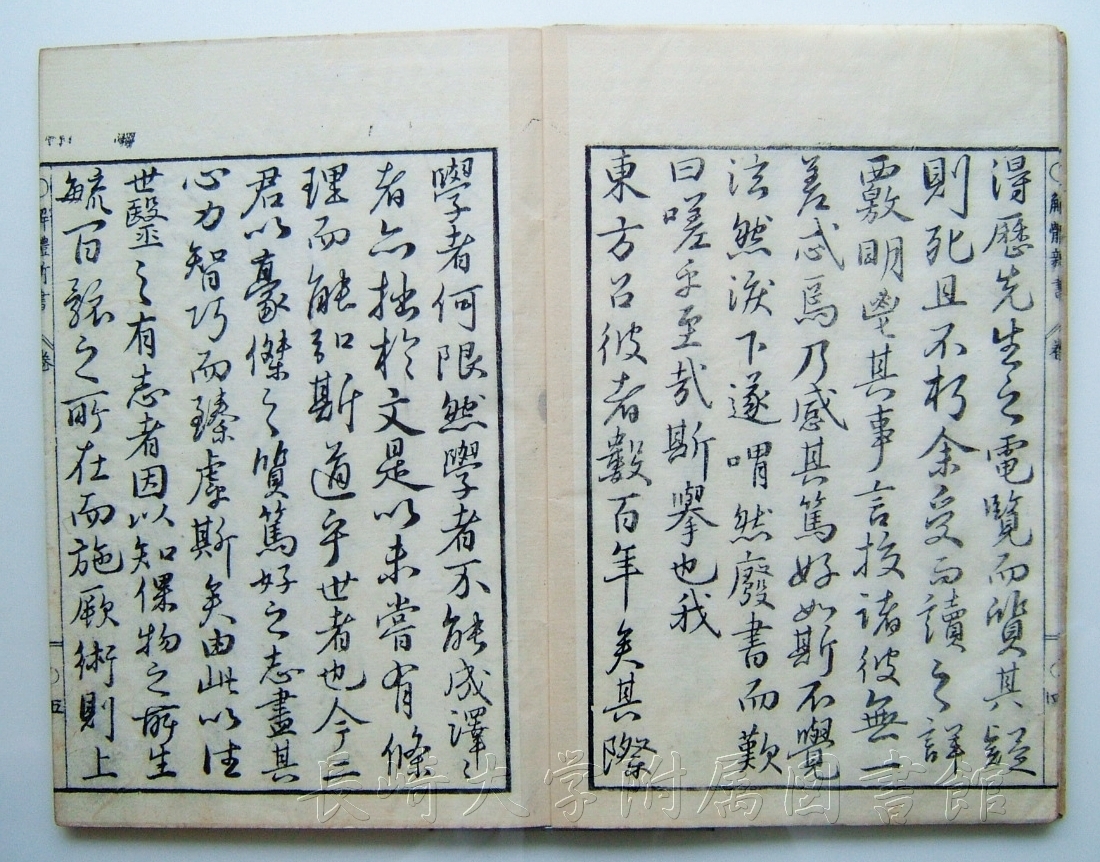 得歷先生之電覽而質其疑
則死且不朽余受而讀之詳
覈明哲其事言按諸彼無一
差忒焉乃感其篤好如斯不覺
泫然淚下遂喟然廢書而歎
曰嗟乎至哉斯擧也我
東方呂彼者數百年矣其際
學者何限然學者不能成譯〻
者亦拙於文是以未嘗有條
理而能弘斯道乎世者也今二
君以豪傑之質篤好之志盡其
心力智巧而臻處斯矣由此以往
世毉之有志者因以知倮物之所生
毓百骸之所在而施厥術則上
解體新書 卷 四
解體新書 卷 五
長崎大学附属図書館